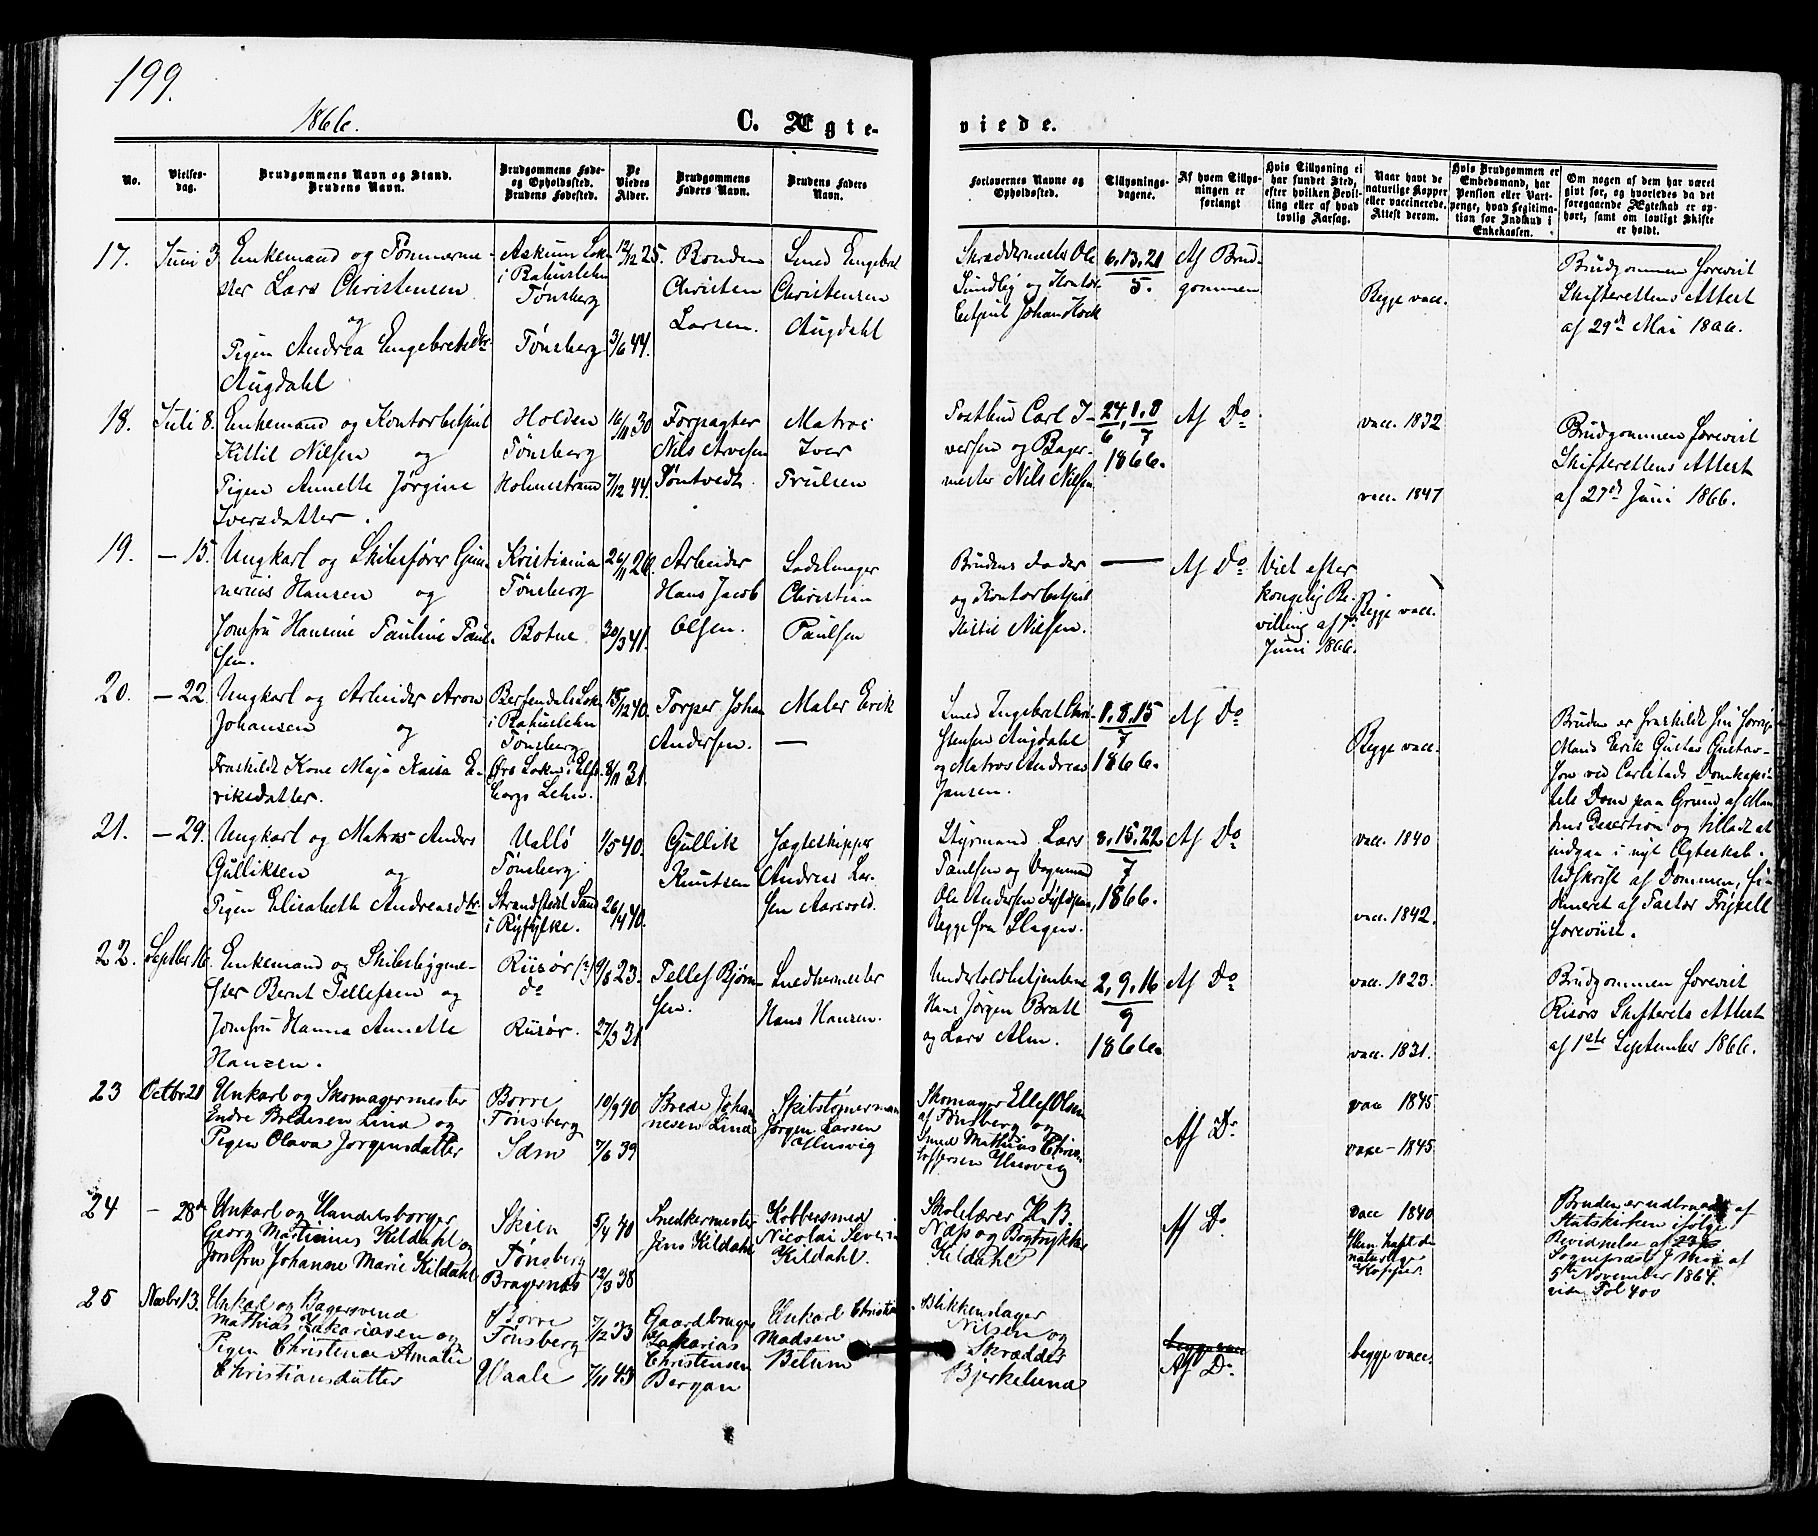 199.
1866.
C. Ægte-
viede.
No.
Vielses-
dag.
Brudgommens Navn og Stand.
Brudens Navn.
Brudgommens Føde-
og Opholdssted.
Brudens Fødested.
De
Viedes
Alder.
Brudgommens
Faders Navn.
Brudens Faders
Navn.
Forlovernes Navne og
Opholdssted.
Tillysnings-
dagene.
Af hvem Tillys-
ningen er
forlangt
Hvis Tillysning ei
har fundet Sted,
efter hvilken Bevil-
ling eller af hvad
lovlig Aarsag.
Naar havt de
naturlige Kopper
eller vaccinerede.
Attest derom.
Hvis Brudgommen er
Embedsmand, har
Pension eller Vart-
penge, hvad Legitima-
tion for Indskud i
Enkekassen.
Om nogen af dem har været
gift før, og hvorledes da det
foregaaende Ægteskab er op-
hørt, samt om lovligt Skifte
er holdt.
17.
Juni 3
Enkemand og Tømmerme-
ster Lars Christensen
og
Pigen Andrea Engebretsdr
Augdahl
Askum Sokn
i Bahuslehn
Tønsberg
Tønsberg
12/12 25.
3/6 44.
Bonden
Christen
Larsen.
Smed Engebret
Christensen
Augdahl
Skræddermester Ole
Sundlig og Kontor-
betjent Johan Hock
6. 13. 21
5.
Af Brud-
gommen
Begge vacc.
Brudgommen forevist
Skifterettens Attest
af 29de Mai 1866.
18.
Juli 8.
Enkemand og Kontorbetjent
Kittil Nilsen og
Pigen Annette Jørgine
Iversdatter.
Holden
Tønsberg
Holmestrand
16/11 30
7/12 44.
Forpagter
Nils Arvesen
Tøntvedt.
Matros
Iver
Trulsen
Postbud Carl I-
versen og Bager-
mester Nils Nilsen
24/6, 1. 8/7
1866.
Af Do
vacc. 1832
vacc. 1847
Brudgommen forevist
Skifterettens Attest
af 27de Juni 1866.
19.
— 15.
Ungkarl og Skibsfører Gun-
nerius Hansen og
Jomfru Hansine Pauline Paul-
sen.
Kristiania
Tønsberg
Botne
26/11 26.
30/3 41.
Arbeider
Hans Jacob
Olsen.
Sadelmager
Christian
Paulsen
Brudens Fader
og Kontorbetjent
Kittil Nilsen.
—
Af Do
Viet efter
kongelig Be-
villing af 7de
Juni 1866.
Begge vacc.
20.
— 22
Ungkarl og Arbeider Aron
Johansen og
Fraskildt Kone Maja Kaisa E-
riksdatter.
Berfendals Sokn
i Bahuslehn
Tønsberg
Ørs Sokn i Elfs-
borgs Lehn.
15/12 40.
8/11 31.
Torper Johan
Andersen.
Maler Erik
—
Smed Ingebret Chri-
stensen Augdahl
og Matros Andreas
Jansen.
1. 8. 15
7
1866.
Af Do
Begge vacc.
Bruden er fraskildt sin forrige
Mand Erik Gustav Gustav-
son ved Carlstads Domkapi-
tels Dom paa Grund af Man-
dens Desertion og tilladt at
indgaa i nyt Ægteskab.
Udskrift af Dommen, si-
dimeret af Pastor Frixell
foreviist.
21.
— 29.
Ungkarl og Matros Anders
Gulliksen og
Pigen Elisabeth Andreasdtr
Vallø
Tønsberg
Strandstedt Sand
i Ryfylke.
1/5 40.
26/4 40.
Gullik
Knutsen
Jægteskipper
Andreas Lar-
sen Aarsvold.
Styrmand Lars
Paulsen og Vognmand
Ole Andersen
Begge fra Slagen.
8. 15. 22
7
1866.
Af Do
vacc. 1840
vacc. 1842.
22.
Septbr 16.
Enkemand og Skibsbyggme-
ster Bernt Tellefsen og
Jomfru Hanna Annette
Hansen.
Riisør (?)
do
Riisør.
9/8 23.
27/3 31
Tellef Bjørn-
sen.
Snedkermester
Hans Hansen.
Undertoldbetjentene
Hans Jørgen Bratt
og Lars Alm.
2. 9. 16
9
1866.
Af Do
vacc. 1823.
vacc. 1831.
Brudgommen forevist
Risørs Skifterets Attest
af 1ste September 1866.
23
Octbr 21
Unkarl og Skomagermester
Endre Bredesen Lind og
Pigen Olava Jørgensdatter
Borre
Tønsberg
Sdm
10/9 40
7/6 39
Brede Johan-
nesen Lind
Skibstømmerman
Jørgen Larsen
Husvig
Skomager Ellef Olsen
af Tønsberg og
Smed Mathias Chri-
stoffersen Husvig
Af Do
vac 1845
vacc - 1845
24
- 28de
Unkarl og Handelsborger
Georg Martinius Kildahl og
Jomfru Johanne Marie Kildahl
Skien
Tønsberg
Bragernæs
5/4 40
12/3 38
Snedkermester
Jens Kildahl
Kobbersmed
Nicolai Severin
Kildahl.
Skolelærer H. B.
Næss og Bogtrykker
Kildahl
Af Do
vacc 1840
Hun havt de
naturlige
Kopper.
Bruden er udtraadt af
Statskirken ifølge
Bevidnelse af
Sognepræst J Moe af
5te November 1864.
vide Fol 400
25
Novbr 13.
Unkarl og Bagersvend
Mathias Zakariasen og
Pigen Christense Amalie
Christiansdatter
Borre
Tønsberg
Waale
7/12 33
7/11 43
Gaardbruger
Zakarias
Christensen
Bergan
Unkarl Christian
Madsen
Betum
Blikkenslager
Nilsen og
Skrædder
Bjerkelund
Af Do
begge vacc.